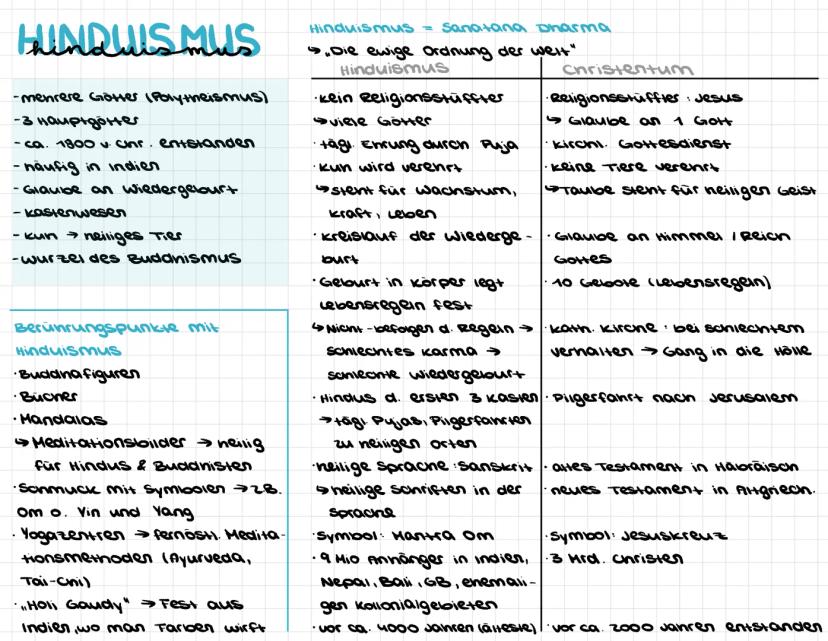 HINDUISMUS
hinduismus
- mehrere Götter (Polytheismus)
- 3 Hauptgötter
- ca. 1800 v. Chr. entstanden
- häufig in Indien
- Glaube an Wiedergeburt
- Kastenwesen
- Kuh → heiliges Tier
- Wurzel des Buddhismus
Berührungspunkte mit
Hinduismus
· Buddhafiguren
· Bücher
· Mandalas
↳ Meditationsbilder → heilig
für Hindus & Buddhisten
· Schmuck mit Symbolen → z.B.
Om o. Yin und Yang
· Yogazentren → fernöstl. Medita-
tionsmethoden (Ayurveda,
Tai-Chi)
· „Holi Gaudy" → Fest aus
Indien, wo man Farben wirft
Hinduismus = Sanatana Dharma
↳ „Die ewige Ordnung der Welt"
Hinduismus
· kein Religionsstüffter
↳ viele Götter
· tägl. Ehrung durch Puja
· Kuh wird verehrt
↳ steht für Wachstum,
Kraft, Leben
· Kreislauf der Wiederge-
burt
· Geburt in Körper legt
Lebensregeln fest
↳ Nicht-befolgen d. Regeln →
schlechtes Karma →
schlechte Wiedergeburt
· Hindus d. ersten 3 Kasten
→ tägl. Pujas, Pilgerfahrten
zu heiligen Orten
· heilige Sprache: Sanskrit
↳ heilige Schriften in der
Sprache
· Symbol: Mantra Om
· 9 Mio Anhänger in Indien,
Nepal, Bali, GB, ehemali-
gen Kollonialgebieten
· vor ca. 4000 Jahren (älteste)
Christentum
· Religionsstüffter: Jesus
↳ Glaube an 1 Gott
· kirchl. Gottesdienst
· keine Tiere verehrt
↳ Taube steht für heiligen Geist
· Glaube an Himmel / Reich
Gottes
· 10 Gebote (Lebensregeln)
· kath. Kirche: bei schlechtem
verhalten → Gang in die Hölle
· Pilgerfahrt nach Jerusalem
· altes Testament in Häbräisch
· neues Testament in Altgriech.
· Symbol: Jesuskreuz
· 3 Mrd. Christen
· vor ca. 2000 Jahren entstanden